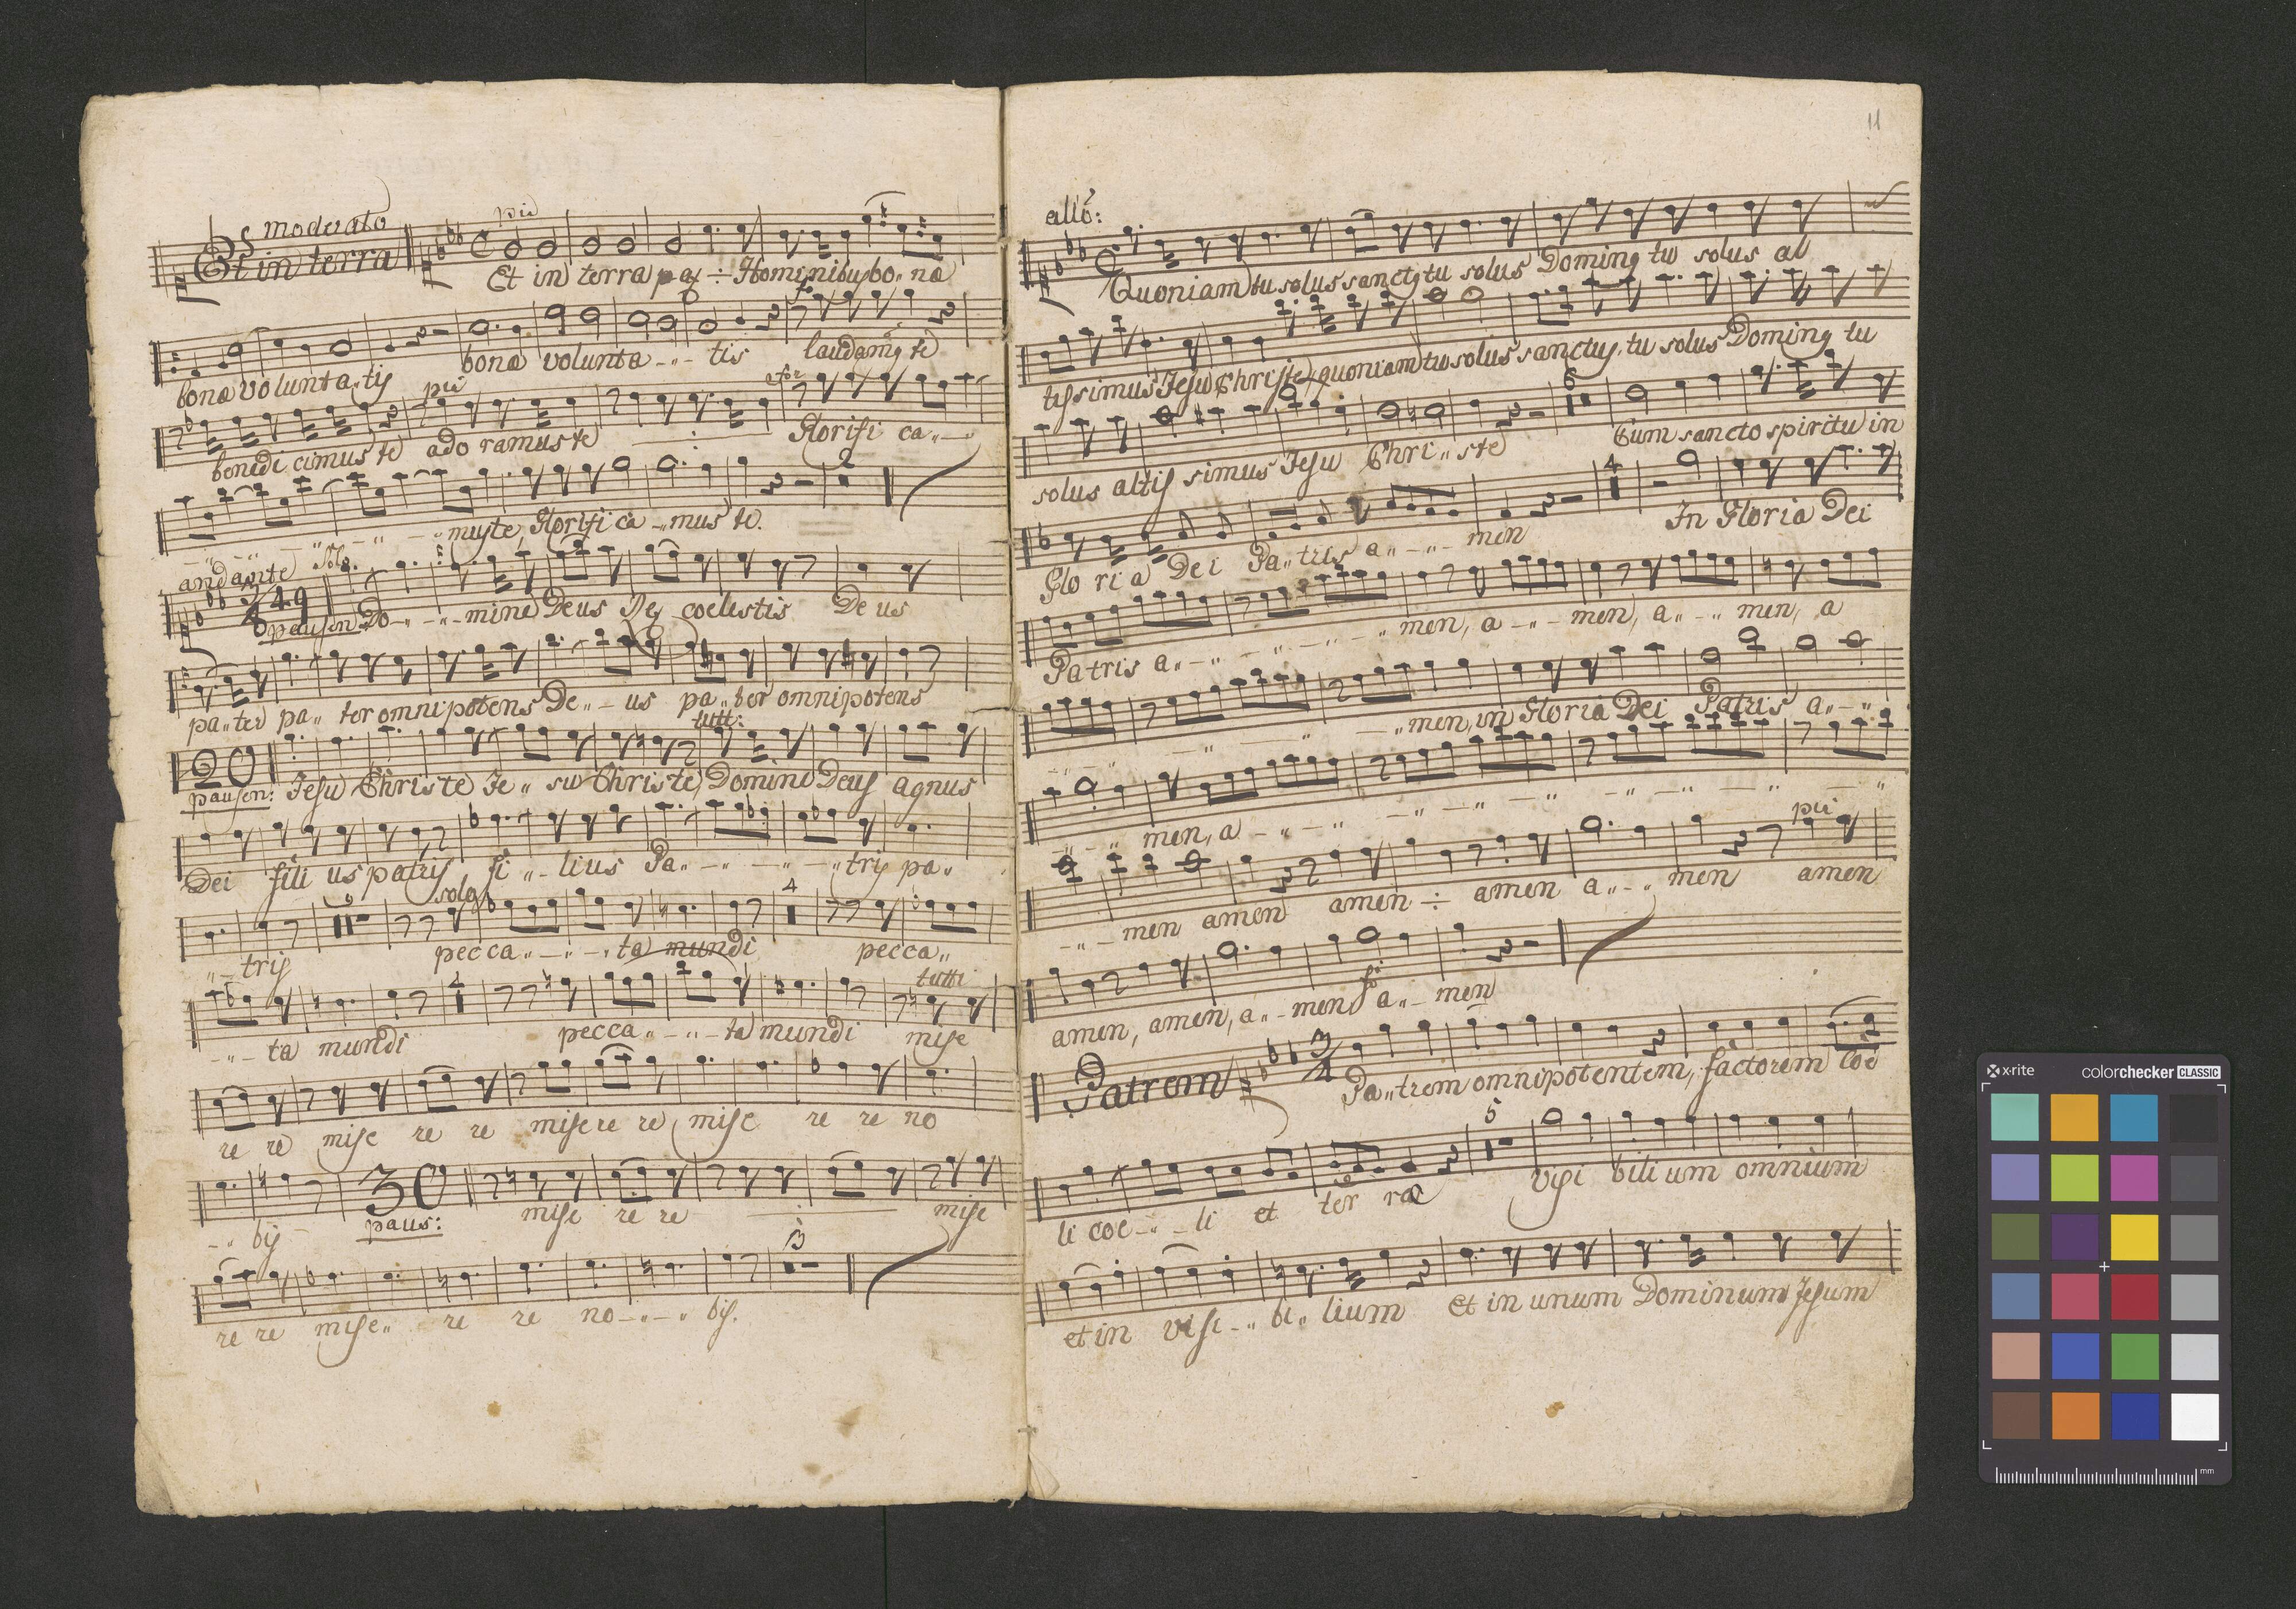 moderato
Et in terra
pia
Et in terra pax ÷ Hominibus bonæ
bonæ voluntatis bonæ volunta - „ - tis laudamus te
pia
benedicimus te adoramus te Glorifi ca„ -
- „ - „ - muste, Glorifi ca -„ mus te.
andante Solo.
3/8 49
pausen Do - „ - mine Deus Rex coelestis Deus
pa„ter pa„ ter omnipotens De„ - us pa„ter omnipotens
20 tutti:
pausen: Jesu Christe Je„ su Christe, Domine Deus agnus
Dei filius patris fi „ - lius Pa„ - „ - „ tris pa„
solo 4
„ - tris pecca„ - „ - „ ta mundi pecca„
4 tutti
- „ - ta mundi pecca„ - „ - ta mundi mise
re re mise re re misere re mise re re no
30
- „ bis paus: mise re re mise
3
re re mise„ re re no - „ - „ bis.
11
allo:
Quoniam tu solus sanctus tu solus Dominus tu solus al
tissimus Jesu Christe, quoniam tu solus sanctus, tu solus Dominus tu
6
solus altis simus Jesu Chri„ ste Cum sancto spiritu in
4
Glo ri a Dei Pa„tris a„ - „ - men In Gloria Dei
Patris a„ - „ - „ - „ - „ men, a - „ - men, a„ - „ men, a
- „ - „ - „ men, in Gloria Dei Patris a„ - „
- „ - „ men, a - „ - „ - „ - „ - „ - „ - „
pia
- „ - men amen amen ÷ amen a„ - „ men amen
fo
amen, amen, a„ - men a„ - men
Patrem 3/4 Pa„trem omnipotentem, factorem coe
5
li coe - „ - li et ter ræ visi bilium omnium
et in visi - „ bi„ lium Et in unum Dominum Jesum
x-rite colorchecker CLASSIC
mm